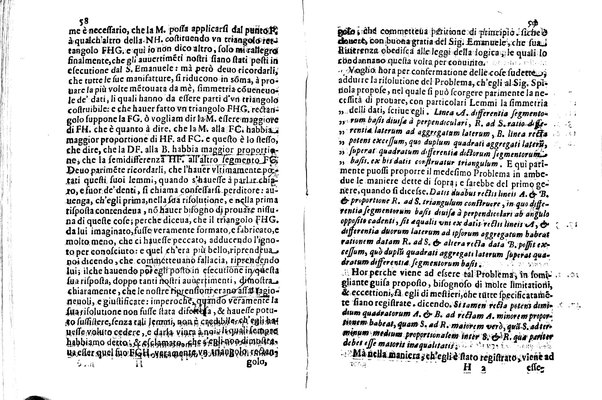 58
me è necessario, che la M. possa applicarsi dal punto F.
à qualch'altro della NH. costituendo vn triangolo ret-
tangolo FHG. e qui io non dico altro, solo mi rallegro
finalmente, che gli auuertimẽti nostri siano stati posti in
esecutione dal S. Emanuele: mà però deuo ricordarli,
che tutte le sue manifatture, si riducono in sõma, à pro-
uare la più volte mẽtouata da mè, simmetria cõueneuo-
le de' dati, quali hanno da esser parti d'vn triangolo
costruibile: e che hauer fatto vn triangolo FHG. rectan-
golo suppone la FG. ò vogliam dir la M. essere maggiore
di FH. che è quanto à dire, che la M. alla FC. habbia
maggior proportione di HF. ad FC. e questo è lo stesso,
che dire, che la DF. alla B. habbia maggior proportio-
ne, che la semidifferenza HF. all'altro segmento FC.
Deuo parimẽte ricordarli, c'hauer vltimamente por-
tati questi suoi lemmi, quando siano à partito chiar-
ro, e fuor de' denti, si chiama confessarsi perditore: au-
uenga, ch'egli prima, nella sua risolutione, e nella pro-
sposta contendeua, nõ hauer bisogno di prouare nissu-
na di queste cose; perche diceua, che il triangolo FHG
da lui imaginato, fusse veramente formato, e fabricato, e
molto meno, che ci hauesse peccato, adducendo l'igno-
to per conosciuto: e quel ch'era più bello, riprendeua
noi dicendo, che commetteuamo fallacia, riprendendo
lui: ilche hauendo poi egli posto in esecutione in questa
sua risposta, doppo tanti nostri auuertimenti, dimostra
chiaramente, che le nostre riprensioni erano assai ragio-
neuoli, e giustificate: imperoche, quando veramente la
sua risolutione non fusse stata difettosa, & hauesse potu-
to sussistere, senza tali lemmi, non è credibile, ch'egli hà
uesse voluto cedere, e darla vinta à noi, i quali sempre
habbiamo detto, & esclamato, che s'egli non dimostra-
ua esser quel suo FGH. veramente, vn triangolo rectan-
H golo,
59
golo, che commetteua petitione di principio, si che è
douere, con buona gratia del Sig. Emanuele, che sua
Riuerenza obedisca alle leggi della logica, le quali lo
condannano questa volta per conuinto.
Voglio hora per confermatione delle cose sudette,
addurre la risolutione del Problema, ch'egli al Sig. Spi-
niola propose, nel quale si può scorgere parimente la ne-
cessità di prouare, con particolari Lemmi la simmetria
„ delli dati, scriue egli. Data differentia segmento-
„ rum basis diuisa à perpendiculari, R. ad S. ratio diffe-
„ rentia laterum ad aggregatum laterum, B. linea recta
„ potens excessum, quo duplum quadrati aggregati laterum,
„ superat quadratum differentiæ dictorum segmentorum
„ basis, ex his datis construatur triangulum. E qui pari-
mente puossi proporre il medesimo Problema in ambe-
due le maniere dette di sopra; e sarebbe del primo ge-
nere, quando si dicesse. Datis duabus rectis lineis A. & B.
& proportione R. ad S. triangulum construere, in quo diffe-
rentia segmentorum basis diuisæ à perpendiculari ab angulo
opposito cadenti, sit æqualis vni ex datis rectis lineis A. &
differentia duorum laterum ad ipsorum aggregatum habeat
rationem datam R. ad S. & altera recta data B. possit exces-
sum, quo duplum quadrati aggregati laterum superat qua-
dratum differentiæ segmentorum basis.
Hor perche viene ad essere tal Problema, in fomi-
gliante guisa proposto, bisognoso di molte limitationi,
& eccettioni, fà egli di mestieri, che tutte specificatamẽ-
te siano registrate, dicendo. Si tamen recta potens dimi-
dium quadratorum A. & B. ad mediam A. minorem propor-
tionem habeat, quam S. ad R. maiorem verò, quã S. ad ter-
minum medium proportionalem inter R. & S. qui pariter
debet esse maioris inæqualitatis;
Mà nella maniera, ch'egli è stato registrato, viene ad
H 2 esse-